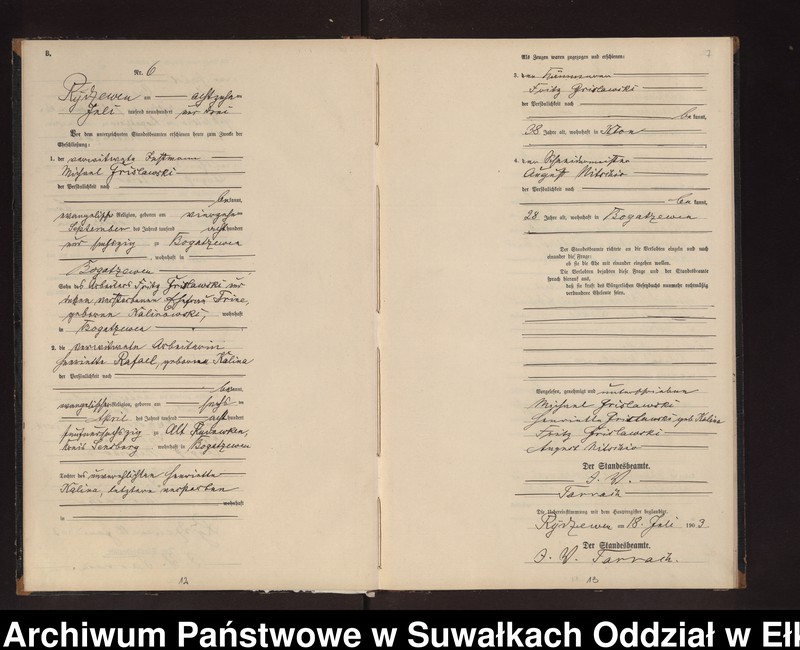 B.
Nr. 6
Rydzewen am achtzehn
Juli tausend neunhundert und drei
Vor dem unterzeichneten Standesbeamten erschienen heute zum Zwecke der
Eheschließung:
1. der verwitwete Instmann
Michael Grislawski
der Persönlichkeit nach
be kannt,
evangelischer Religion, geboren am vierzehn
September des Jahres tausend achthundert
und sechszig zu Bogatzewen
, wohnhaft in
Bogatzewen
Sohn des Arbeiters Fritz Grislawski und
dessen verstorbenen Ehefrau Trine,
geborene Kalinowski, wohnhaft
in Bogatzewen
2. die verwitwete Arbeiterin
Henriette Rafael, geborene Kalina
der Persönlichkeit nach
be kannt,
evangelischer Religion, geboren am sechs
April des Jahres tausend acht hundert
fünfundsechszig zu Alt
Kreis Sensburg, wohnhaft in Bogatzewen
Tochter der unverehelichten Henriette
Kalina, letztere verstorben
wohnhaft
in
12
7
Als Zeugen waren zugezogen und erschienen:
3. der
Fritz Grislawski
der Persönlichkeit nach
be kannt,
38 Jahre alt, wohnhaft in Klon
4. der Schneidermeister
August Nitschio
der Persönlichkeit nach
be kannt,
28 Jahre alt, wohnhaft in Bogatzewen
Der Standesbeamte richtete an die Verlobten einzeln und nach
einander die Frage:
ob sie die Ehe mit einander eingehen wollen.
Die Verlobten bejahten diese Frage und der Standesbeamte
sprach hierauf aus,
daß sie kraft des Bürgerlichen Gesetzbuchs nunmehr rechtmäßig
verbundene Eheleute seien.
Vorgelesen, genehmigt und unterschrieben
Michael Grislawski
Henriette Grislawski geb Kalina
Fritz Grislawski
August Nitschio
Der Standesbeamte.
J. V.
Tarrach
Die Uebereinstimmung mit dem Hauptregister beglaubigt
Rydzewen am 18. Juli 1903.
Der Standesbeamte.
J. V. Tarrach.
13
Archiwum Państwowe w Suwałkach Oddział w Ełk